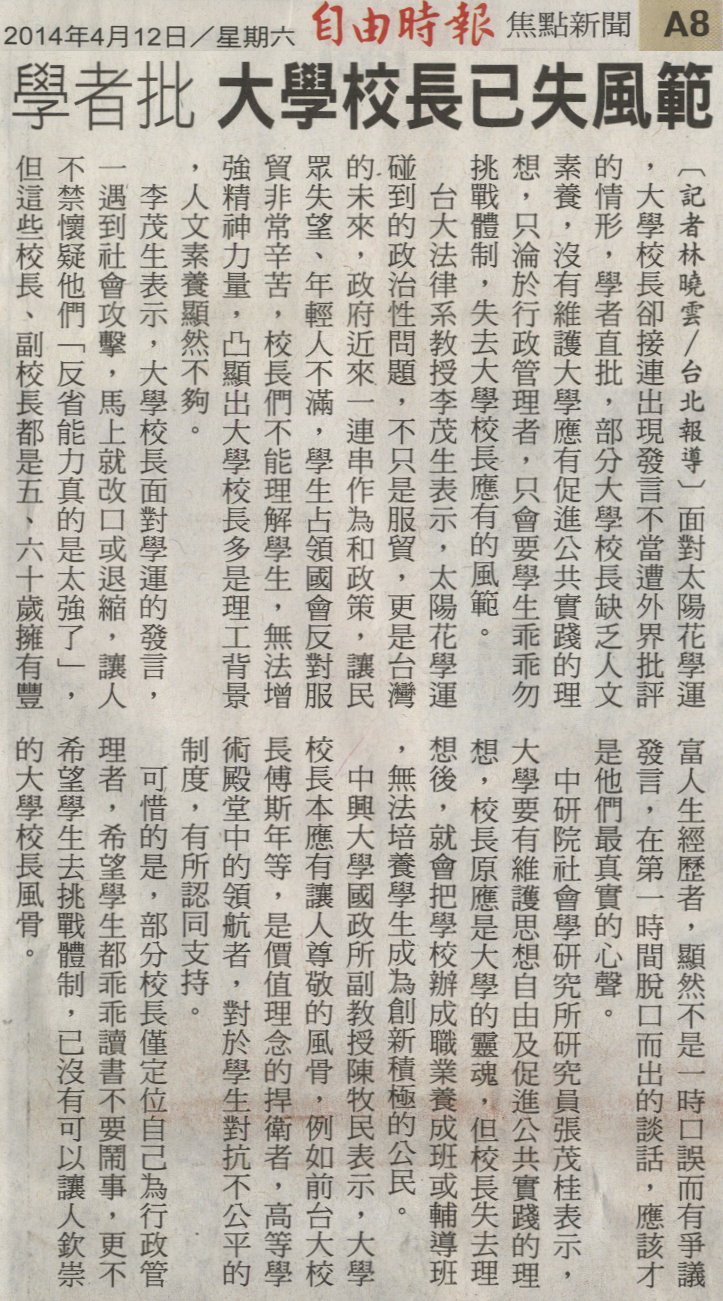 2014年4月12日／星期六 自由時報 焦點新聞 A8
學者批 大學校長已失風範
〔記者林曉雲／台北報導〕面對太陽花學運
，大學校長卻接連出現發言不當遭外界批評
的情形，學者直批，部分大學校長缺乏人文
素養，沒有維護大學應有促進公共實踐的理
想，只淪於行政管理者，只會要學生乖乖勿
挑戰體制，失去大學校長應有的風範。
台大法律系教授李茂生表示，太陽花學運
碰到的政治性問題，不只是服貿，更是台灣
的未來，政府近來一連串作為和政策，讓民
眾失望、年輕人不滿，學生占領國會反對服
貿非常辛苦，校長們不能理解學生，無法增
強精神力量，凸顯出大學校長多是理工背景
，人文素養顯然不夠。
李茂生表示，大學校長面對學運的發言，
一遇到社會攻擊，馬上就改口或退縮，讓人
不禁懷疑他們「反省能力真的是太強了」，
但這些校長、副校長都是五、六十歲擁有豐
富人生經歷者，顯然不是一時口誤而有爭議
發言，在第一時間脫口而出的談話，應該才
是他們最真實的心聲。
中研院社會學研究所研究員張茂桂表示，
大學要有維護思想自由及促進公共實踐的理
想，校長原應是大學的靈魂，但校長失去理
想後，就會把學校辦成職業養成班或輔導班
，無法培養學生成為創新積極的公民。
中興大學國政所副教授陳牧民表示，大學
校長本應有讓人尊敬的風骨，例如前台大校
長傅斯年等，是價值理念的捍衛者，高等學
術殿堂中的領航者，對於學生對抗不公平的
制度，有所認同支持。
可惜的是，部分校長僅定位自己為行政管
理者，希望學生都乖乖讀書不要鬧事，更不
希望學生去挑戰體制，已沒有可以讓人欽崇
的大學校長風骨。